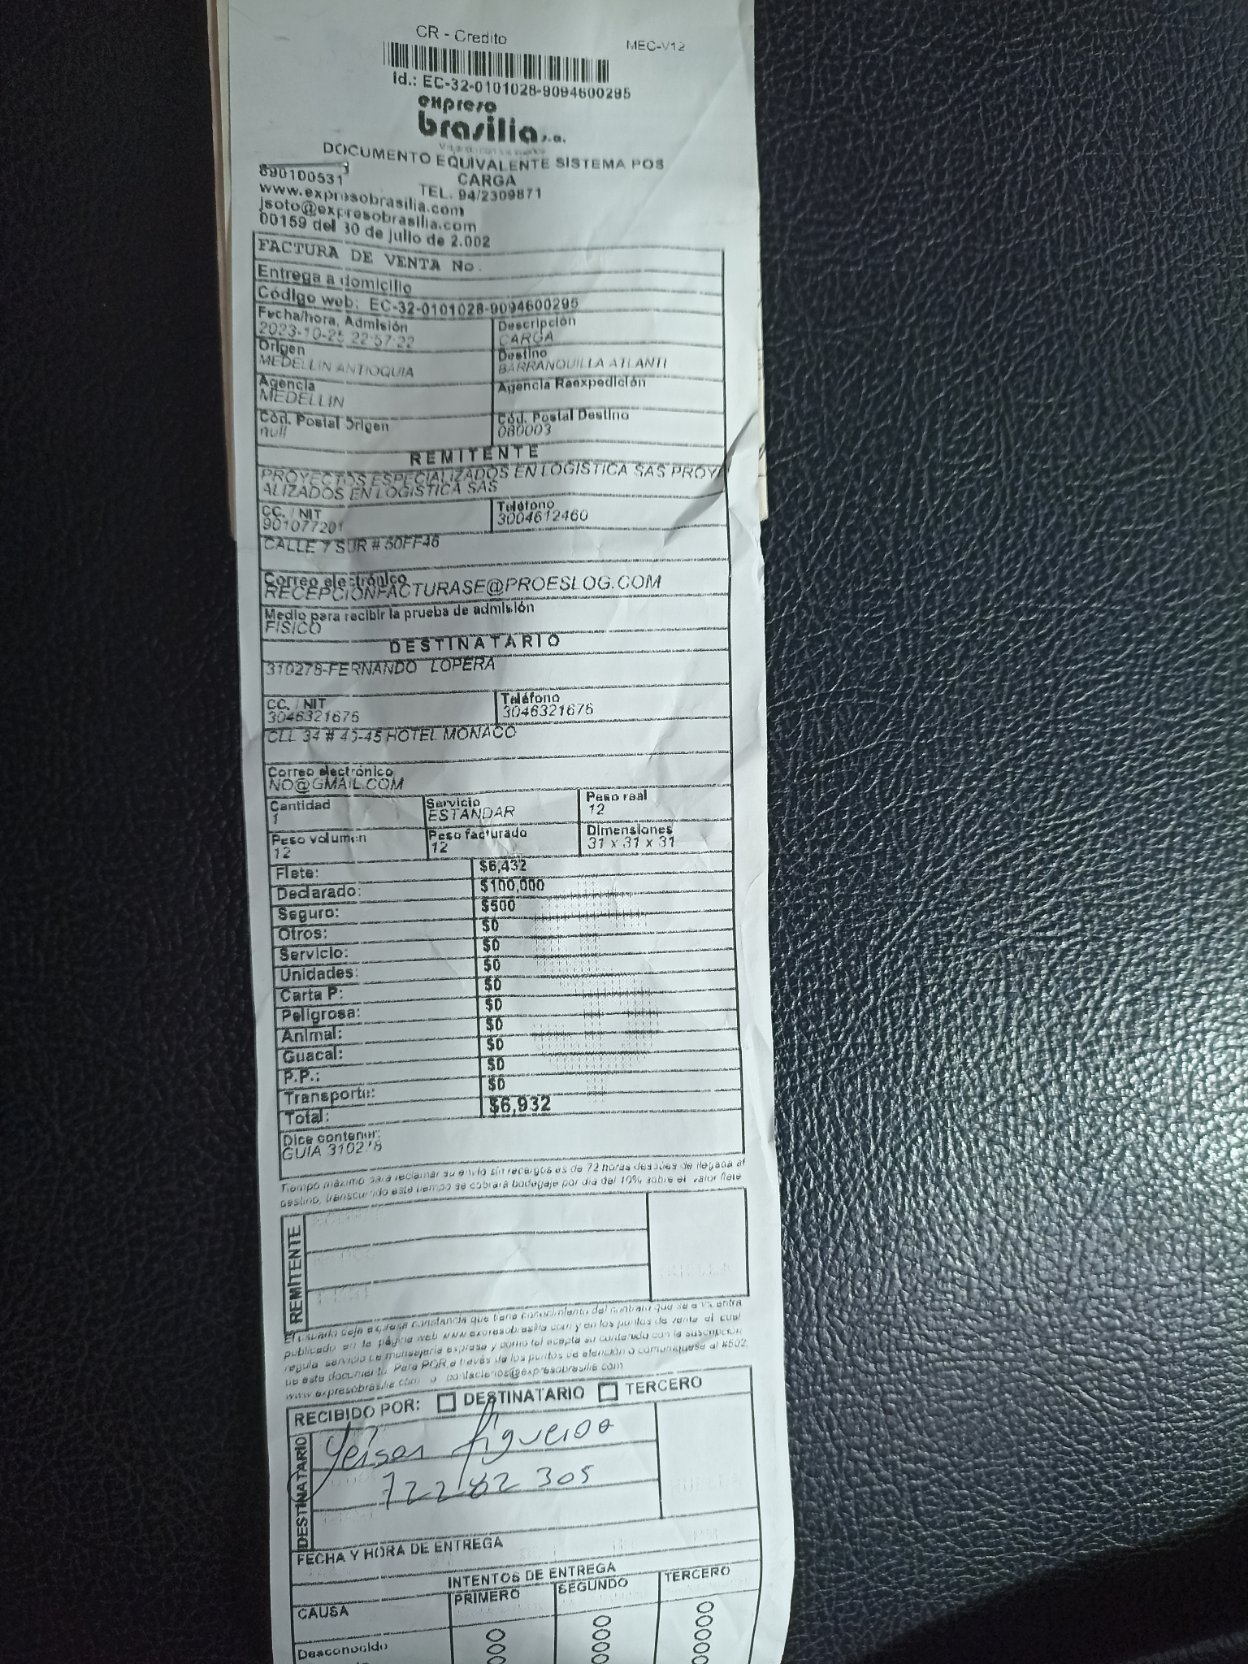 CR - Credito
MEC-V12
Id.: EC-32-0101028-9094600295
expreso
brasilia s.a.
DOCUMENTO EQUIVALENTE SISTEMA POS
CARGA
890100531
TEL. 94/2309871
www.expresobrasilia.com
jsoto@expresobrasilia.com
00159 del 30 de julio de 2.002
FACTURA DE VENTA No.
Entrega a domicilio
Código web: EC-32-0101028-9094600295
Fecha/hora, Admisión
2023-10-25 22:57:22
Descripción
CARGA
Origen
MEDELLIN ANTIOQUIA
Destino
BARRANQUILLA ATLANTI
Agencia
MEDELLIN
Agencia Reexpedición
Cód. Postal Origen
null
Cód. Postal Destino
080003
REMITENTE
PROYECTOS ESPECIALIZADOS EN LOGISTICA SAS PROY
ALIZADOS EN LOGISTICA SAS
CC. / NIT
901077201
Teléfono
3004612460
CALLE 7 SUR # 50FF46
Correo electrónico
RECEPCIONFACTURASE@PROESLOG.COM
Medio para recibir la prueba de admisión
FISICO
DESTINATARIO
310278-FERNANDO LOPERA
CC. / NIT
3046321676
Teléfono
3046321676
CLL 34 # 45-45 HOTEL MONACO
Correo electrónico
NO@GMAIL.COM
Cantidad
1
Servicio
ESTANDAR
Peso real
12
Peso volumen
12
Peso facturado
12
Dimensiones
31 x 31 x 31
Flete: $6,432
Declarado: $100,000
Seguro: $500
Otros: $0
Servicio: $0
Unidades: $0
Carta P: $0
Peligrosa: $0
Animal: $0
Guacal: $0
P.P.: $0
Transporte: $0
Total: $6,932
Dice contener:
GUIA 310278
Tiempo máximo para reclamar su envío sin recargos es de 72 horas después de llegada al
destino, transcurrido este tiempo se cobrará bodegaje por día del 10% sobre el valor flete
REMITENTE
El usuario deja expresa constancia que tiene conocimiento del contrato que se encuentra
publicado en la página web www.expresobrasilia.com y en los puntos de venta el cual
regula servicio de mensajería expresa y como tal acepta su contenido con la suscripción
de este documento. Para PQR a través de los puntos de atención o comuníquese al #502,
www.expresobrasilia.com o contactenos@expresobrasilia.com
RECIBIDO POR: DESTINATARIO TERCERO
DESTINATARIO
Yeison Figueroa
72282305
FECHA Y HORA DE ENTREGA
INTENTOS DE ENTREGA
CAUSA
PRIMERO
SEGUNDO
TERCERO
Desconocido